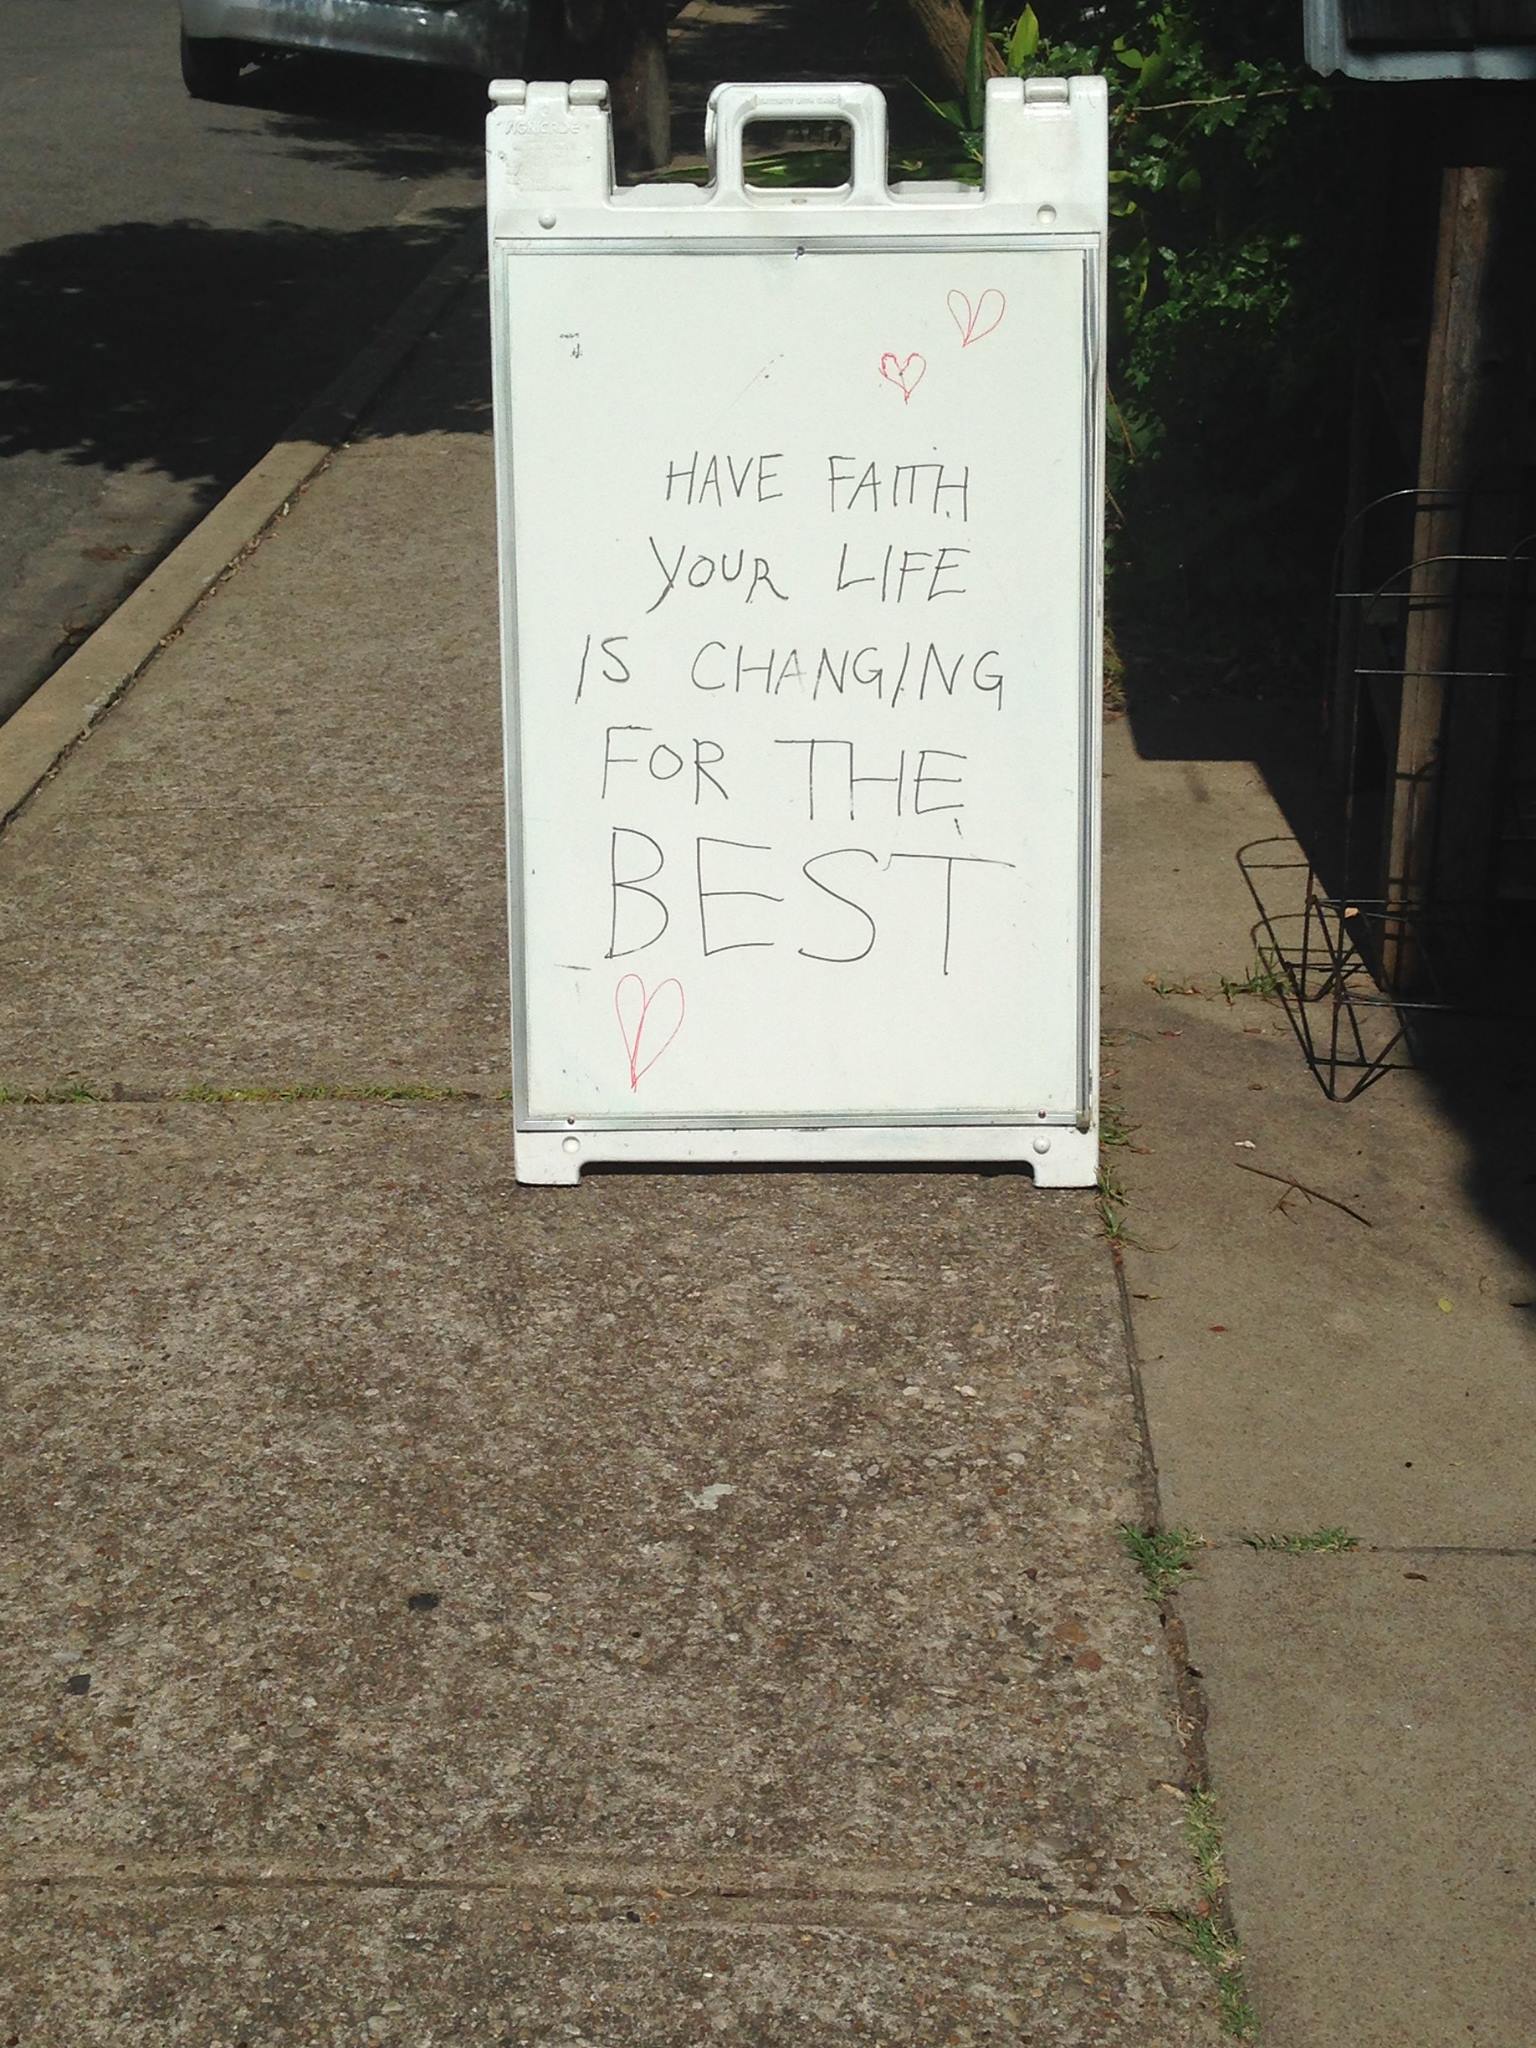 HAVE FAITH
YOUR LIFE
IS CHANGING
FOR THE
BEST